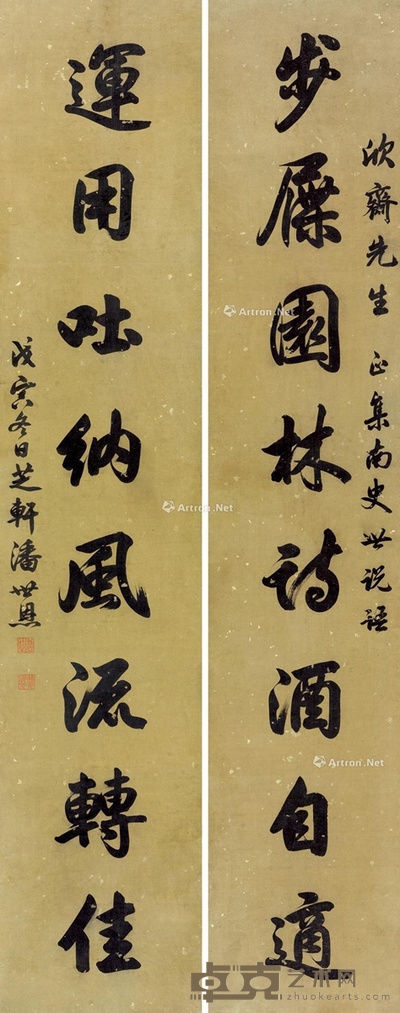 欣齋先生 正 集南史世說語
步屧園林詩酒自適
運用吐納風流轉佳
戊寅冬日芝軒潘世恩
Artron.Net
Artron.Net
Artron.Net
卓克艺术网
zhuokearts.com